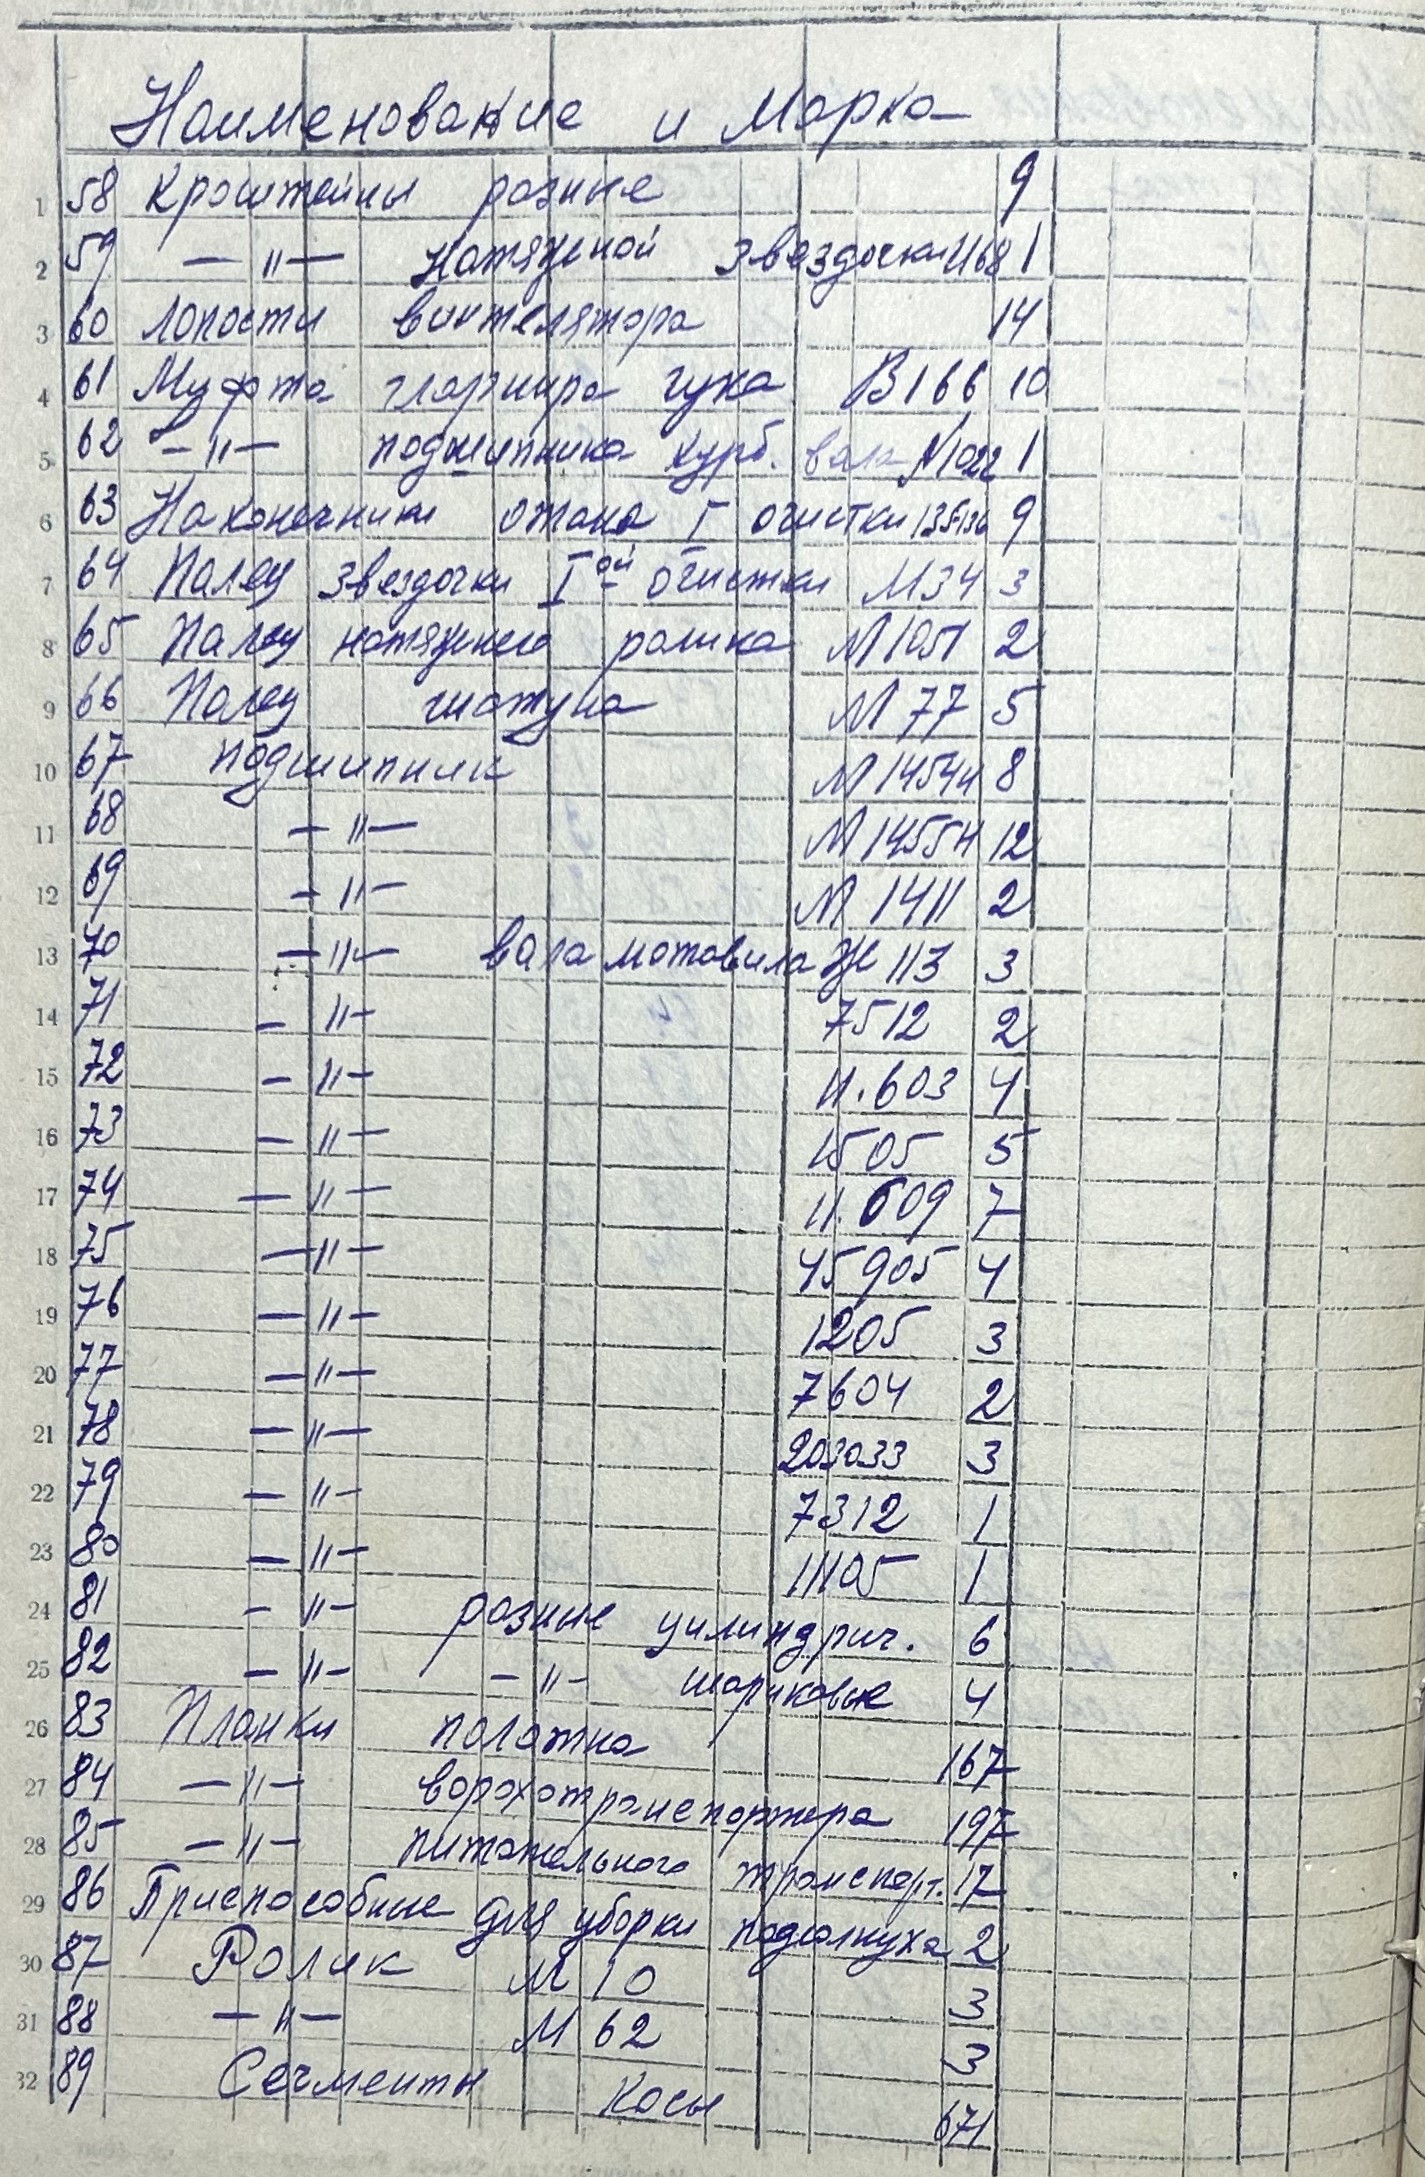 Наименование и Марка
1 58 Кронштейны разные 9
2 59 — " — Натяжной звездочки М68 1
3 60 Лопасти винтелятора 14
4 61 Муфта гларнира гука В166 10
5 62 — " — подшипника курб. вала М1022 1
6 63 Наконечники стана I очистки 135-136 9
7 64 Палец звездочки I ой очистки М34 3
8 65 Палец натяжного ролика М1051 2
9 66 Палец шатуна М 77 5
10 67 Подшипник М 1454н 8
11 68 — " — М 1455н 12
12 69 — " — М 1411 2
13 70 — " — вала мотовила Ж 113 3
14 71 — " — 7512 2
15 72 — " — 11.603 4
16 73 — " — 1505 5
17 74 — " — 11.609 7
18 75 — " — 45905 4
19 76 — " — 1205 3
20 77 — " — 7604 2
21 78 — " — 203033 3
22 79 — " — 7312 1
23 80 — " — 11105 1
24 81 — " — разные цилиндрич. 6
25 82 — " — — " — шариковые 4
26 83 Планки полотна 167
27 84 — " — ворохотранспортера 197
28 85 — " — питательного транспорт. 17
29 86 Приспособние для уборки подсолнуха 2
30 87 Ролик М 10 3
31 88 — " — М 62 3
32 89 Сегменты Косы 671